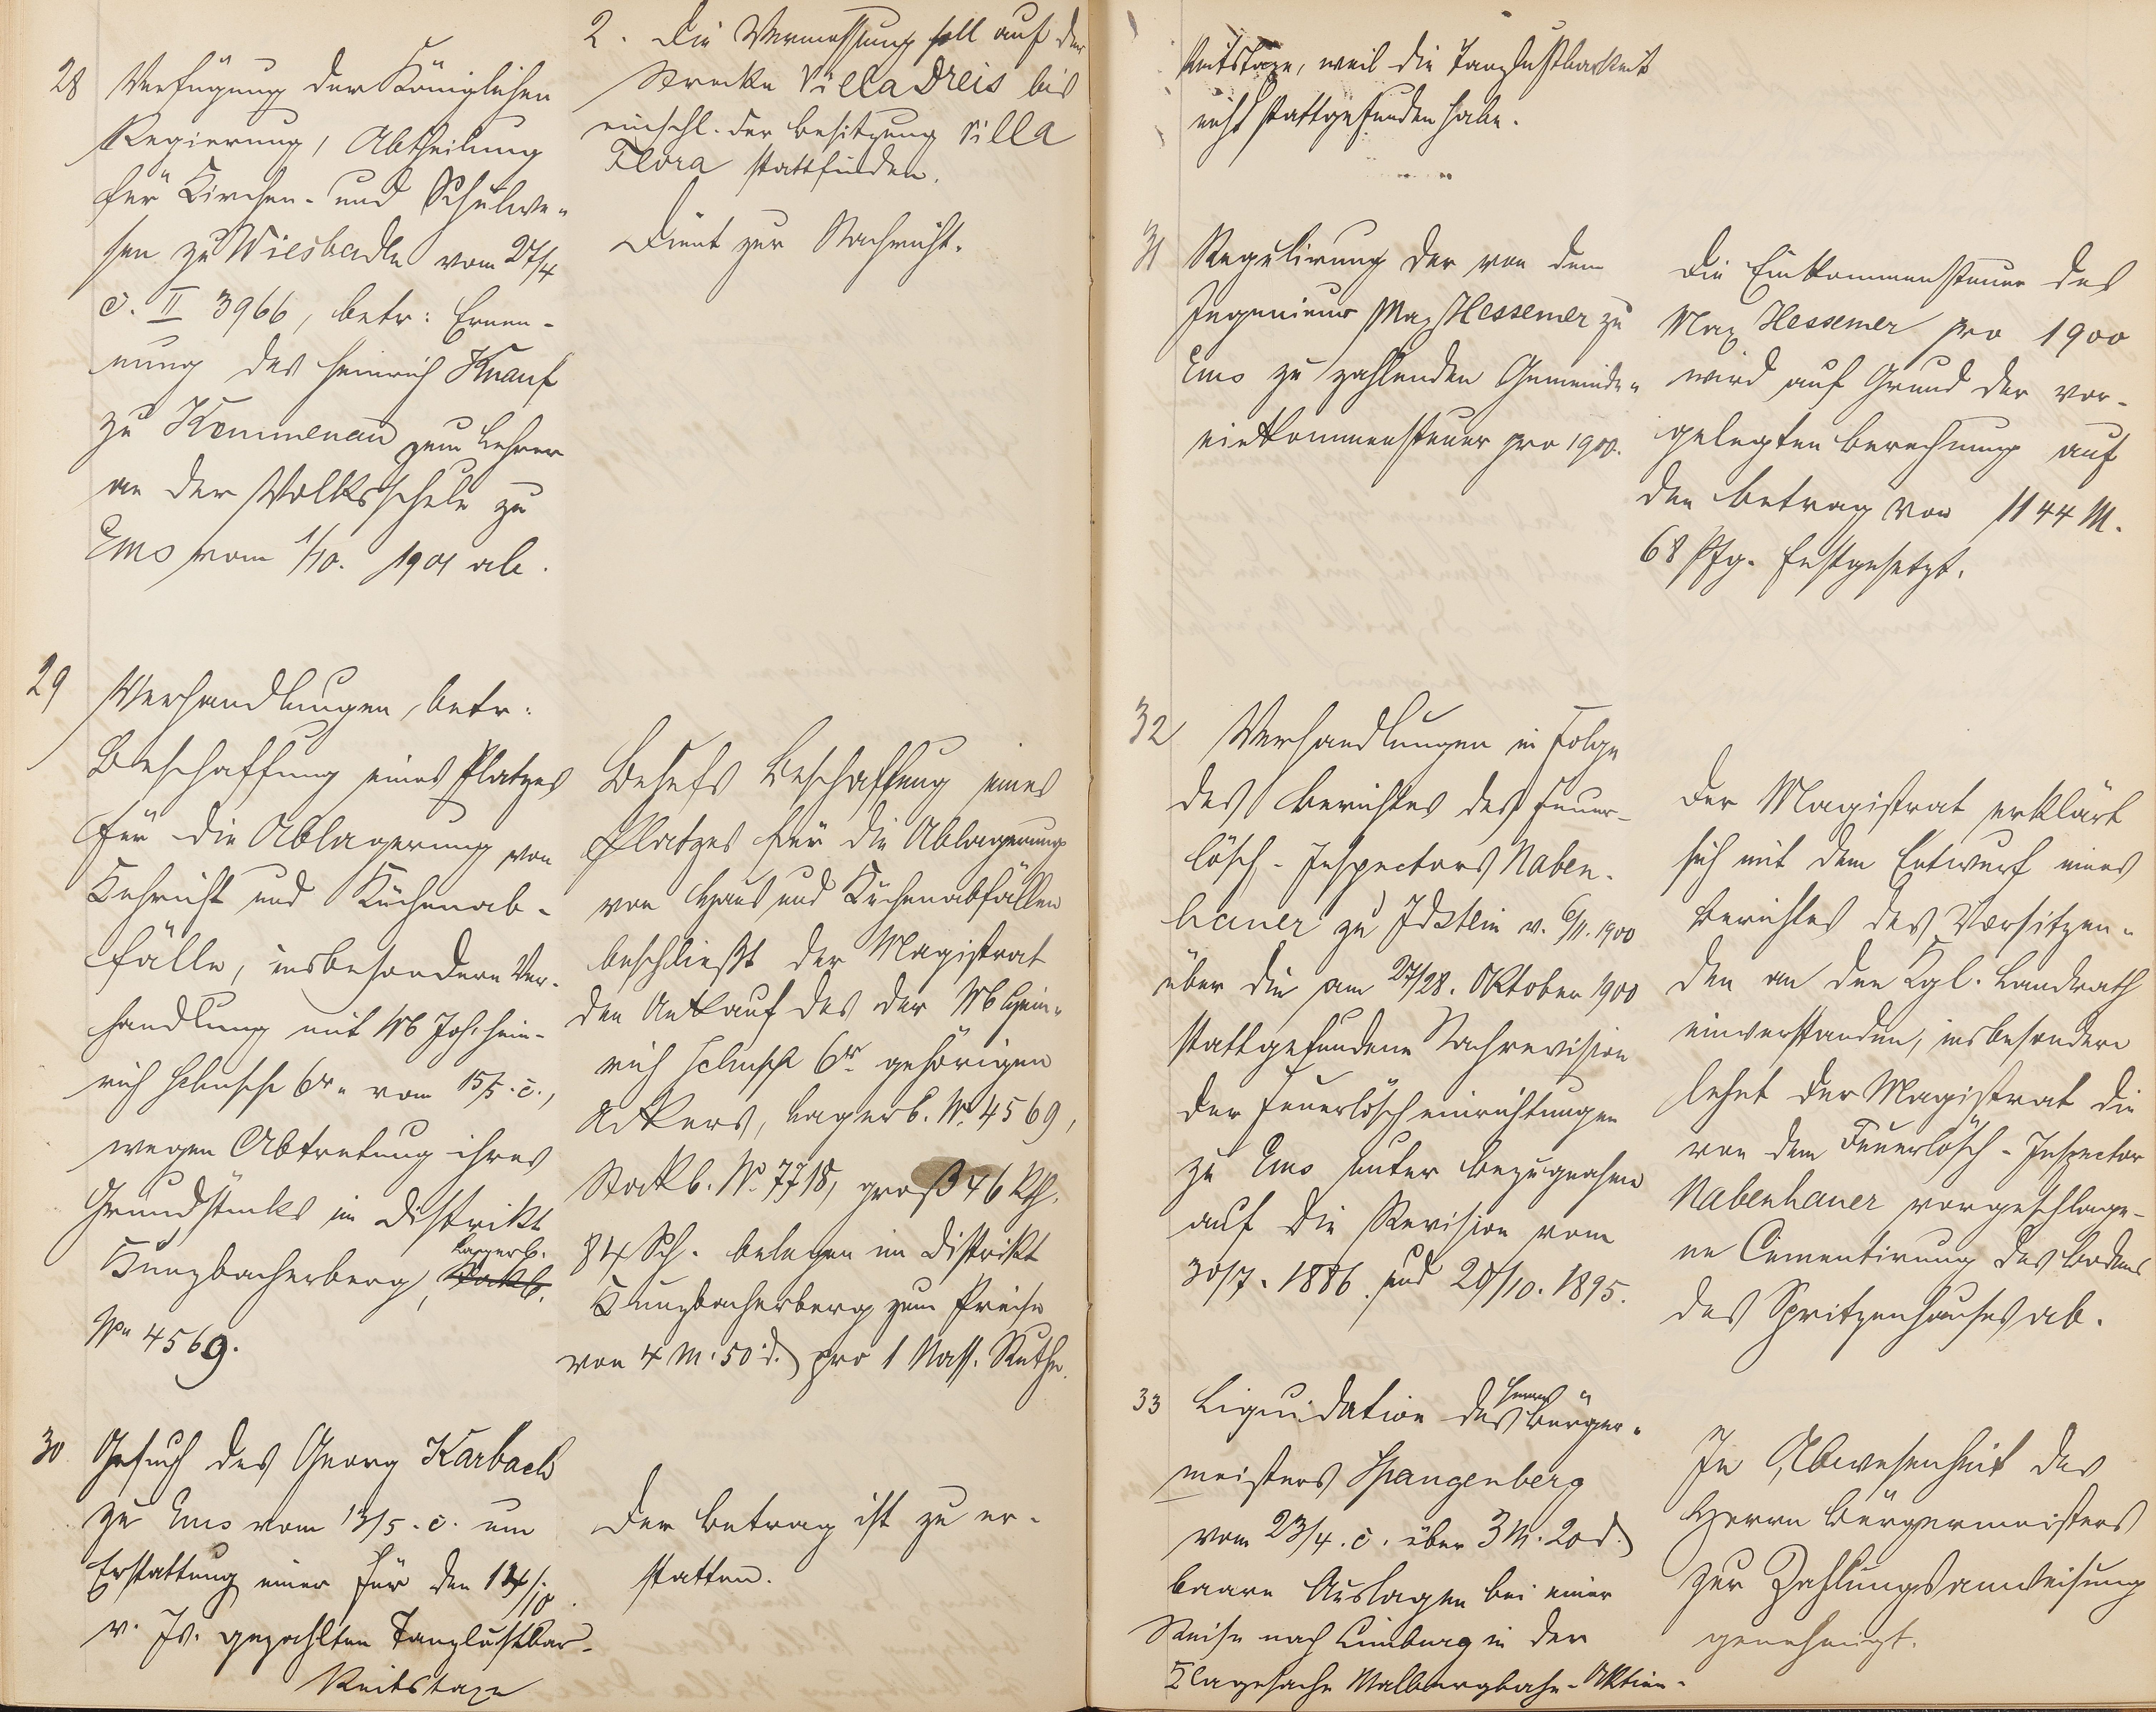 2. Die Vermessung soll auf der
Strecke Villa Dreis bis
einschl. der Besitzung Villa
Flora stattfinden.
28 Verfügung der Königlichen
Regierung, Abtheilung
für Kirchen- und Schulwe-
sen zu Wiesbaden vom 27/4
c. II 3966, betr: Ernen-
nung des Heinrich Knauf
zu Kemmenau zum Lehrer
an der Volksschule zu
Ems vom 1/10. 1901 ab.
Dient zur Nachricht.
29 Verhandlungen, betr:
Beschaffung eines Platzes
für die Ablagerung von
Kehricht und Küchenab-
fälle, insbesondere Ver-
handlung mit Wb Joh. Hein-
rich 6r. vom 15/5. c.,
wegen Abtretung ihres
Grundstücks im Distrikt
Hunzbacherberg, Lagerb. Stockb.
No 4569.
Behufs Beschaffung eines
Platzes für die Ablagerung
von Haus und Küchenabfällen
beschließt der Magistrat
den Ankauf des der Wb Hein-
rich 6r gehörigen
Ackers, Lagerb. No. 4569,
Stockb. No. 7718, groß 46 Rth.
84 Sch. belegen im Distrikt
Hunzbacherberg zum Preise
von 4 M. 50 d. pro 1 Nass. Ruthe.
30 Gesuch des Georg Karbach
zu Ems vom 13/5. c. um
Erstattung einer für den 14/10.
v. Js. gezahlten Tanzlustbar-
keitstaxe
Der Betrag ist zu er-
statten.
keitstaxe, weil die Tanzlustbarkeit
nicht stattgefunden habe.
31 Regulirung der von dem
Ingenieur Max Hessemer zu
Ems zu zahlenden Gemeinde-
einkommensteuer pro 1900.
Die Einkommensteuer des
Max Hessemer pro 1900
wird auf Grund der vor-
gelegten Berechnung auf
den Betrag von 1144 M.
68 Pfg. festgesetzt.
32 Verhandlungen in Folge
des Berichtes des Feuer-
lösch-Inspectors Naben-
hauer zu Idstein v. 6/11. 1900
über die am 27/28. Oktober 1900
stattgefundene Nachrevision
der Feuerlöscheinrichtungen
zu Ems unter Bezugnahme
auf die Revision vom
30/7. 1886. und 28/10. 1895.
Der Magistrat erklärt
sich mit dem Entwurf eines
Berichtes des Vorsitzen-
den an den Kgl. Landrath
einverstanden, insbesondere
lehnt der Magistrat die
von dem Feuerlösch-Inspector
Nabenhauer vorgeschlage-
ne Cementirung des Bodens
des Spritzenhauses ab.
33 Liquidation des Herrn Bürger-
meisters Spangenberg
vom 23/4. c. über 3 M. 20 d.
baare Auslagen bei einer
Reise nach Limburg in der
Klagesache Malbergbahn-Aktien-
In Abwesenheit des
Herrn Bürgermeisters
zur Zahlungsanweisung
genehmigt.